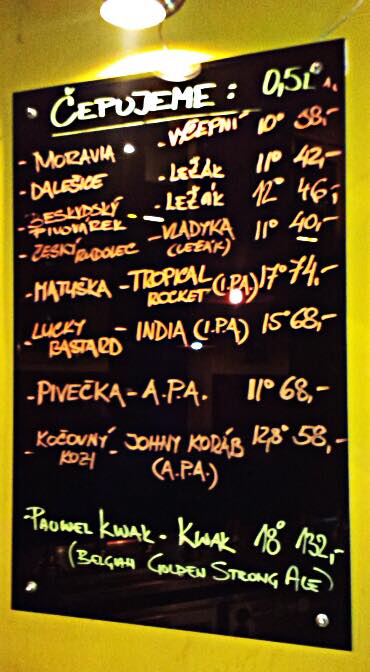 ČEPUJEME: 0,5L
- MORAVIA - VÝČEPNÍ 10° 38,-
- DALEŠICE - LEŽÁK 11° 42,-
- BESKYDSKÝ PIVOVÁREK - LEŽÁK 12° 46,-
- ČESKÝ RUDOLEC - VLADYKA (LEŽÁK) 11° 40,-
- MATUŠKA - TROPICAL ROCKET (I.P.A) 17° 74,-
- LUCKY BASTARD - INDIA (I.P.A) 15° 68,-
- PIVEČKA - A.P.A. 11° 68,-
- KOČOVNÝ KOZY - JOHNY KORÁB (A.P.A.) 12,8° 58,-
- PAUWEL KWAK - KWAK 18° 132,-
(BELGIAN GOLDEN STRONG ALE)